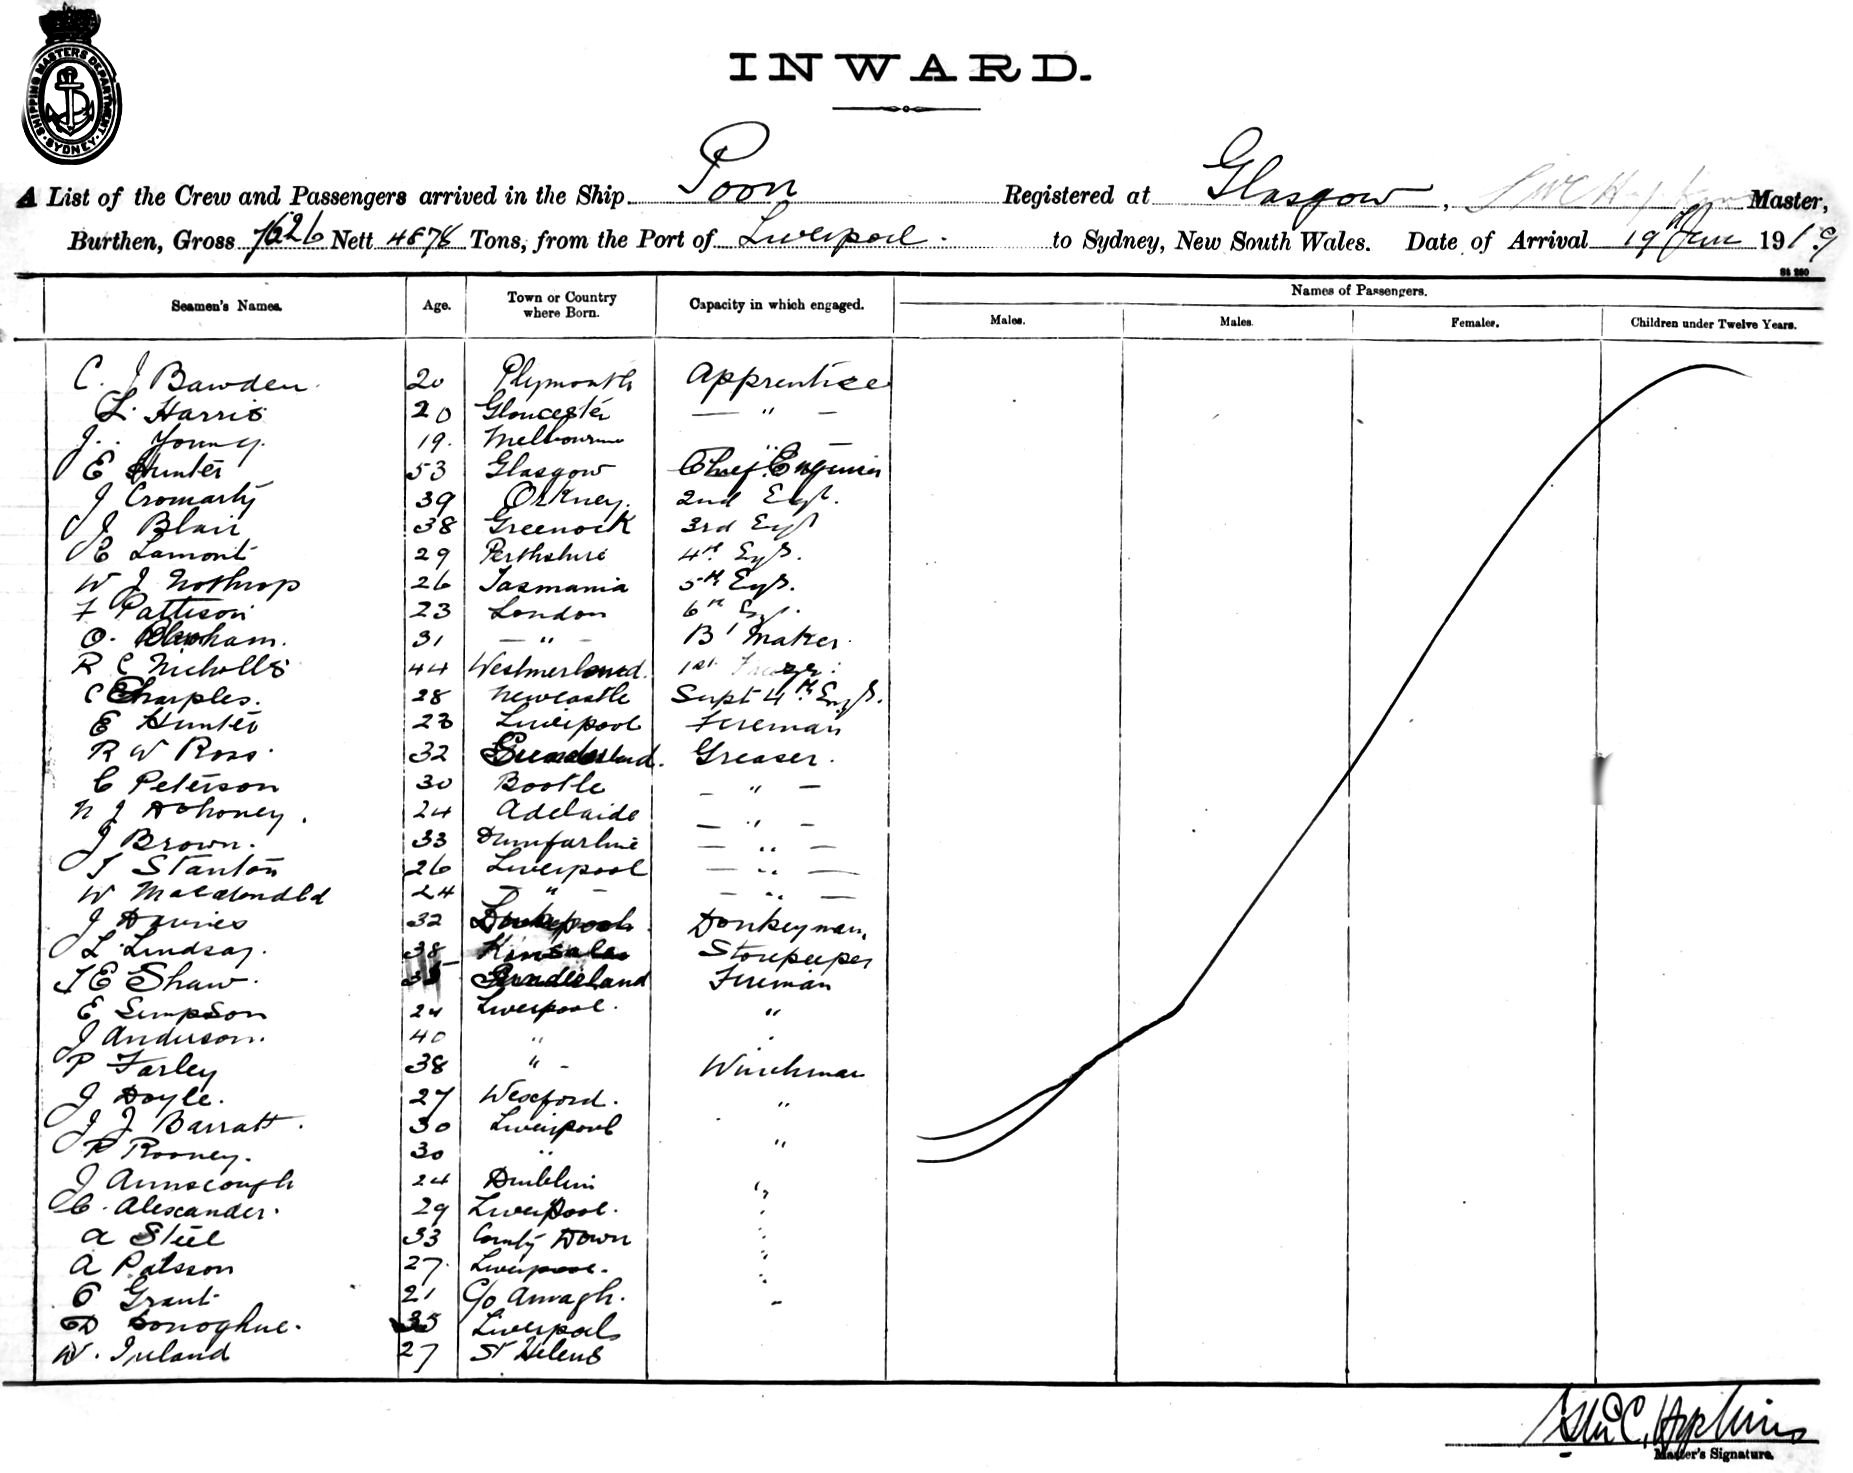 SHIPPING MASTERS DEPARTMENT SYDNEY
INWARD.
A List of the Crew and Passengers arrived in the Ship Poon Registered at Glasgow, Master,
Burthen, Gross 7626 Nett 4878 Tons, from the Port of Liverpool. to Sydney, New South Wales. Date of Arrival 19th June 1919
Seamen's Names. Age. Town or Country where Born. Capacity in which engaged. Names of Passengers.
Males. Males. Females. Children under Twelve Years.
C. J Bawden 20 Plymouth Apprentice
L. Harris 20 Gloucester — " —
J. Young. 19. Melbourne " —
E Hunter 53 Glasgow Chief Engineer
J Cromarty 39 Orkney. 2nd Eng'r.
J Blair 38 Greenock 3rd Eng'r
E Lamont 29 Perthshire 4th Eng'r.
W J Northrop 26 Tasmania 5th Eng'r.
F Pattison 23 London 6th Eng'r.
O. 31 — " — B' Maker.
R C Nicholls 44 Westmorland. 1st
C Sharples. 28 Newcastle Supt 4th Eng'r.
E Hunter 23 Liverpool Fireman
R W Ross. 32 Sunderland. Greaser.
C Peterson 30 Bootle — " —
N J Mahoney. 24 Adelaide — " —
J Brown. 33 Dumfarline — " —
T Stanton 26 Liverpool — " —
W Macdonald 24 — " — — " —
J Davies 32 Donkeyman.
L Lindsay. 38 Kinsale Storekeeper
T E Shaw. 35 Sunderland Fireman
E Simpson 24 Liverpool. "
J Anderson. 40 " "
P Farley 38 " - Winchman
J Doyle. 27 Wexford. "
J J Barratt. 30 Liverpool
P Rooney. 30 " "
J Ainscough 24 Dublin "
C. Alexander. 29 Liverpool. "
A Steel 33 County Down "
A Patsson 27. Liverpool. "
Grant 21 C/o Armagh. "
D Donoghue. 35 Liverpool
W. Ireland 27 St Helens
Hopkins
Master's Signature.